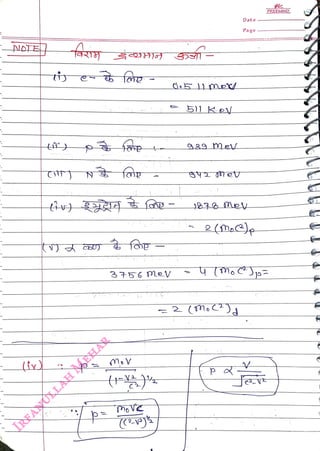 Date
Page
NOTE विराम द्रव्यमान ऊर्जा -
(i) e- के लिए -
0.511 MeV
= 511 KeV
(ii) P के लिए :- 939 MeV
(iii) N के लिए - 942 MeV
(iv) ड्यूट्रॉन के लिए - 1878 MeV
= 2(m₀c²)p
(v) α कण के लिए -
3756 MeV = 4 (m₀c²)p =
= 2 (m₀c²)d
(iv) ∵ p = m₀v / (1-v²/c²)^1/2
p ∝ v / √c²-v²
∵ p = m₀vc / (c²-v²)^½
IRFANULLAH MEHAR